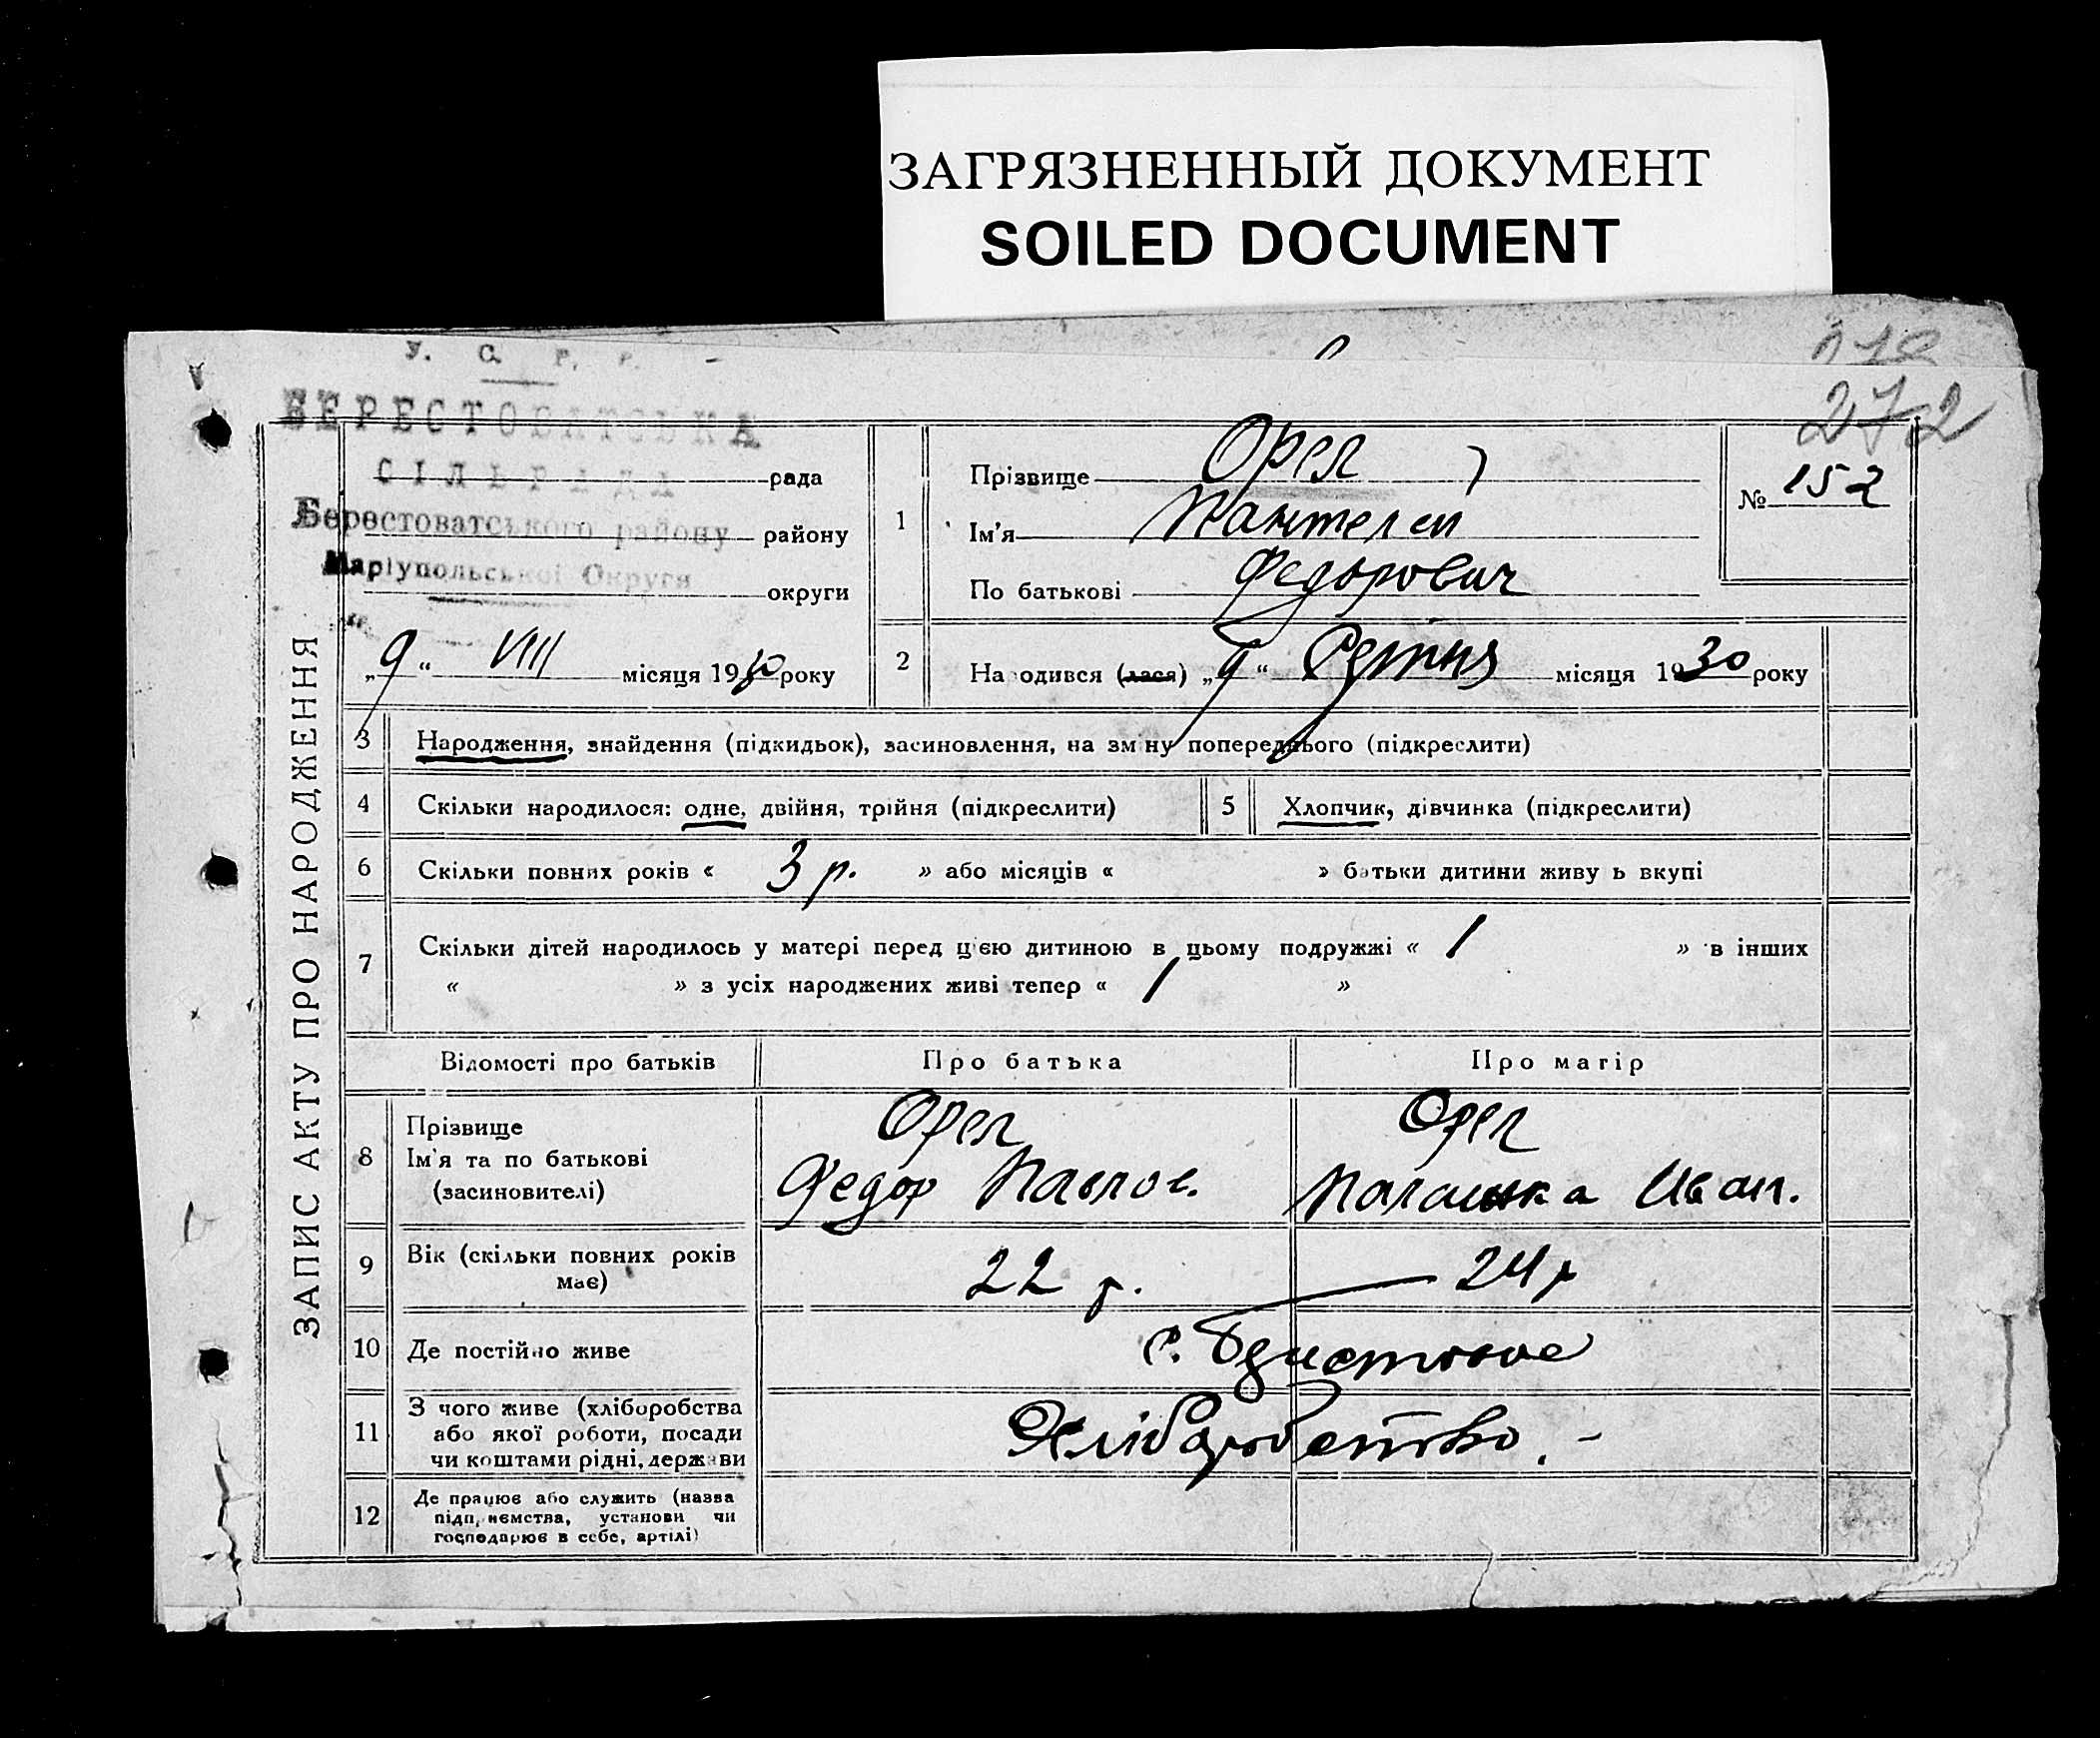 ЗАГРЯЗНЕННЫЙ ДОКУМЕНТ
SOILED DOCUMENT
272
У. С. Р. Р.
БЕРЕСТОВАТСЬКА
СІЛЬРАДА рада
Берестоватського району району
Маріупольської Округи
округи
„9“ VIII місяця 1930 року
ЗАПИС АКТУ ПРО НАРОДЖЕННЯ
1 Прізвище Орел
Ім'я Пантелей
По батькові Федорович
№ 152
2 Народився (лася) „9“ Серпня місяця 1930 року
3 Народження, знайдення (підкидьок), засиновлення, на зміну попереднього (підкреслити)
4 Скільки народилося: одне, двійня, трійня (підкреслити)
5 Хлопчик, дівчинка (підкреслити)
6 Скільки повних років « 3 р. » або місяців « » батьки дитини живуть вкупі
7 Скільки дітей народилось у матері перед цією дитиною в цьому подружжі « 1 » в інших
« » з усіх народжених живі тепер « 1 »
Відомості про батьків Про батька Про матір
8 Прізвище Орел Орел
Ім'я та по батькові Федор Павлов. Палашка Иван.
(засиновителі)
9 Вік (скільки повних років 22 р. 24 р
має)
10 Де постійно живе с.
11 З чого живе (хліборобства Хліборобство. -
або якої роботи, посади
чи коштами рідні, держави
12 Де працює або служить (назва
підприємства, установи чи
господарює в себе, артілі)